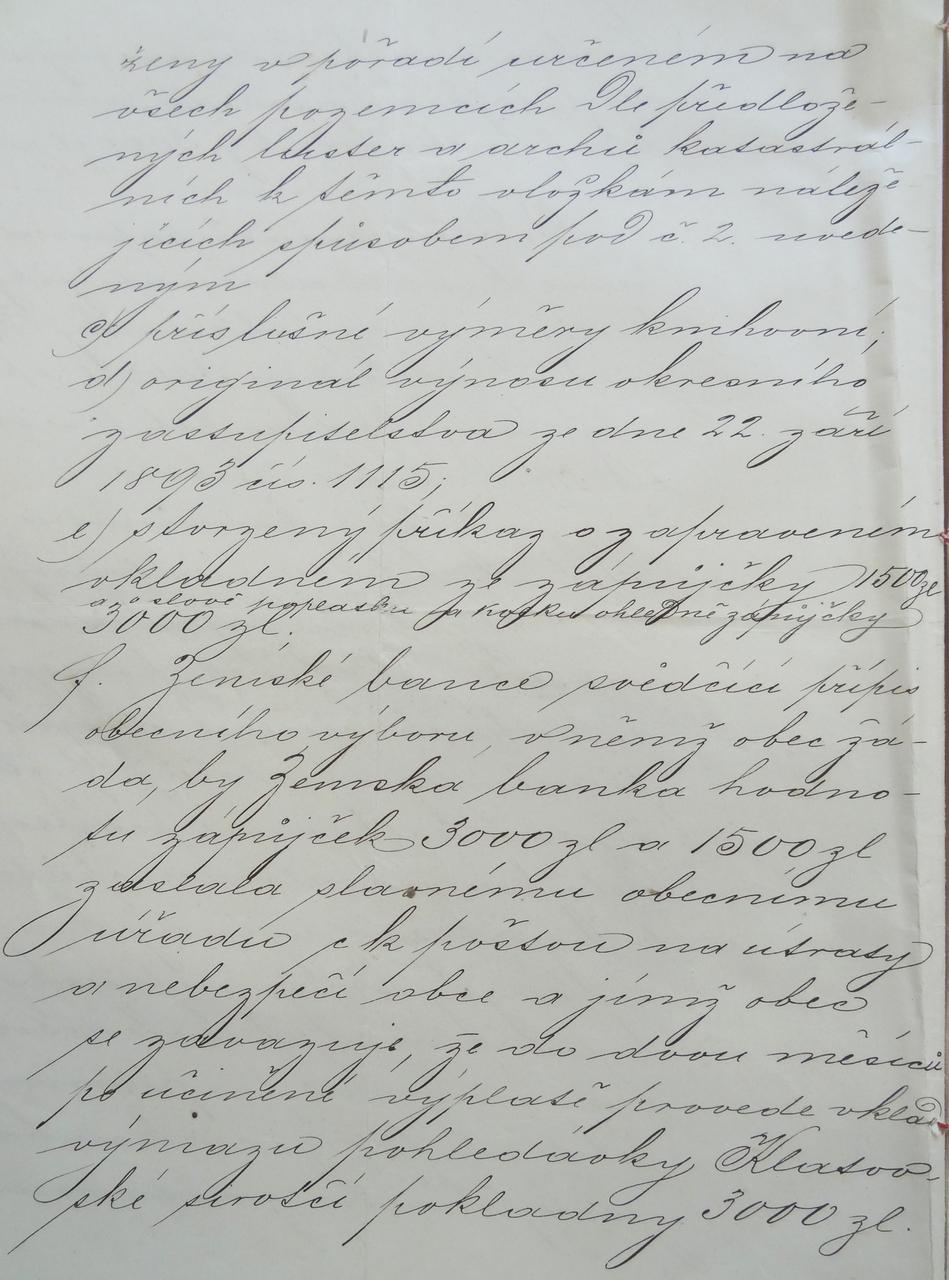 ženy v pořadí určeném na
všech pozemcích dle předlože-
ných luster a archů katastrál-
ních k těmto vložkám náleže-
jících spůsobem pod č. 2. uvede-
ným
c) příslušné výměry knihovní;
d) originál výnosu okresního
zastupitelstva ze dne 22. září
1893 čís. 1115;
e) stvrzený příkaz o zapraveném
vkladném ze zápůjčky 1500 zl
poplatku a kolku ohledně zápůjčky
3000 zl.
f. Zemské bance svědčící přípis
obecního výboru, v němž obec žá-
dá, by Zemská banka hodno-
tu zápůjček 3000 zl a 1500 zl
zaslala slavnému obecnímu
úřadu c k poštou na útraty
a nebezpečí obce a jímž obec
se zavazuje, že do dvou měsíců
po učiněné výplatě provede vklad
výmazu pohledávky Klatov-
ské sirotčí pokladny 3000 zl.